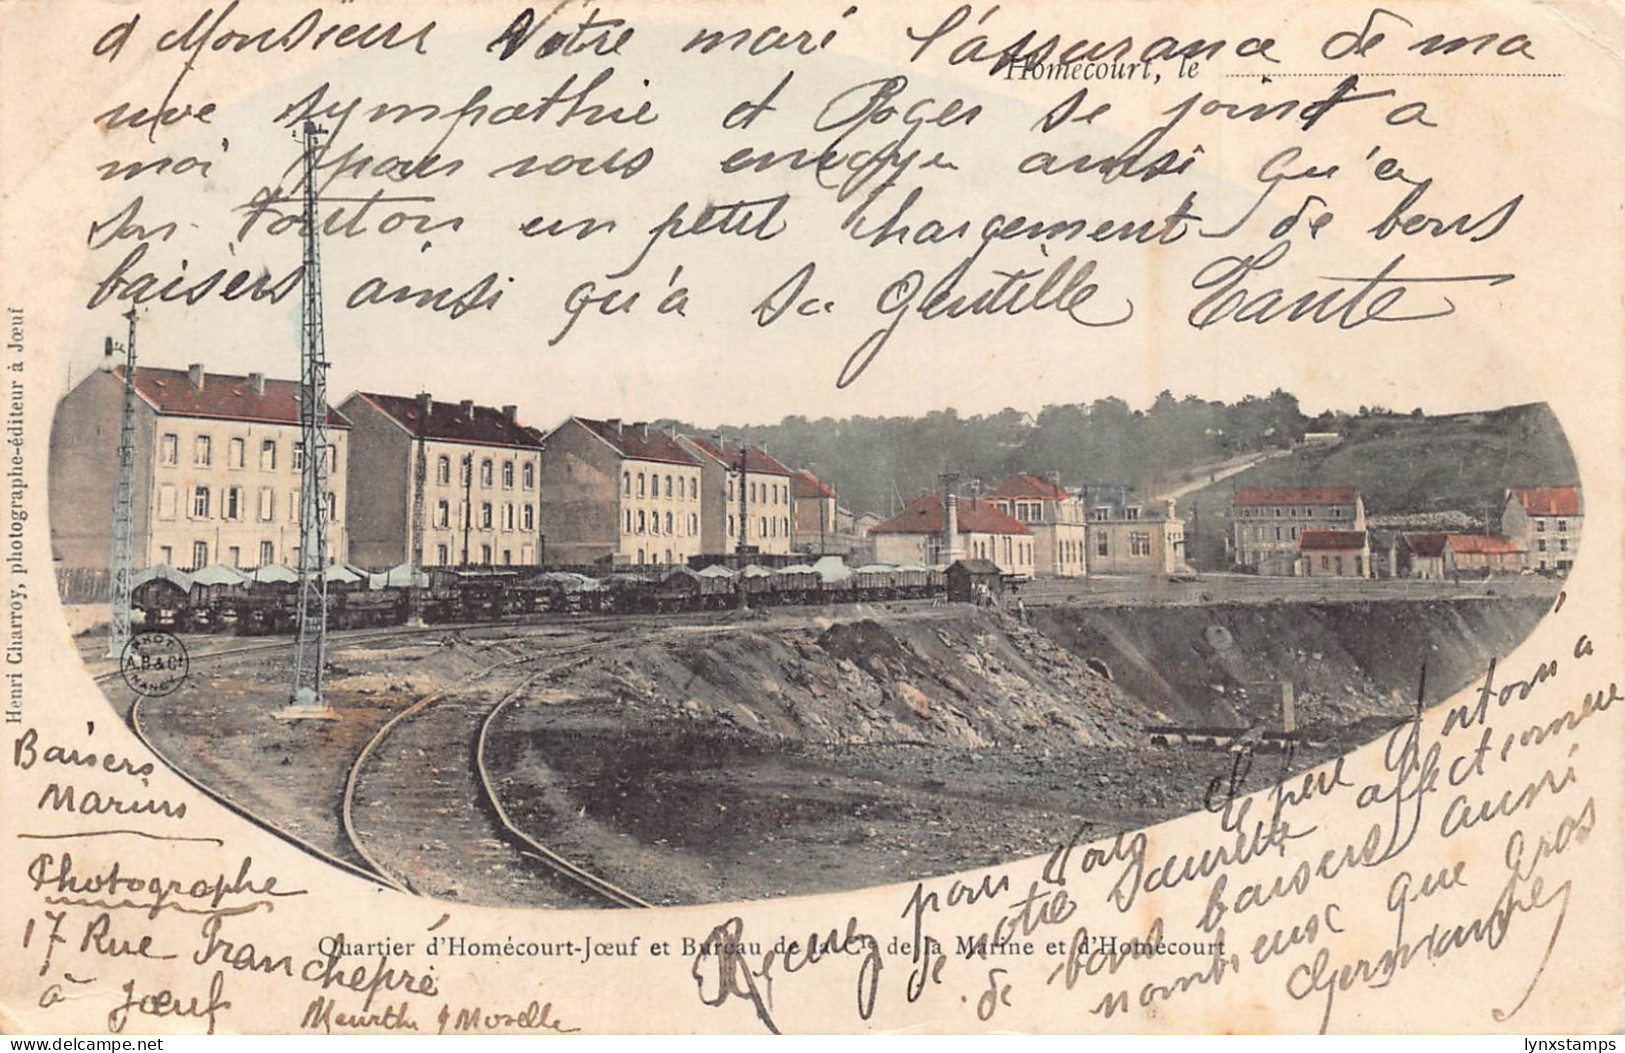 d Monsieur Votre mari l'assurance de ma
Homécourt, le
vive sympathie et Roger se joint a
moi pour vous envoyer ainsi qu'a
son Tonton un petit chargement de bons
baisers ainsi qu'a sa gentille Tante
Henri Charroy, photographe-éditeur à Jœuf
PHOT.
A.B & Cie
NANCY
Baisers
Marius
Photographe
17 Rue Franchepré
à Jœuf
Meurthe & Moselle
Quartier d'Homécourt-Jœuf et Bureau de la Cie de la Marine et d'Homécourt
Recevez pour Votre père Antoni a
de notre affectionnée
de bons baisers aussi
nombreux que gros
Germaine
lynxstamps